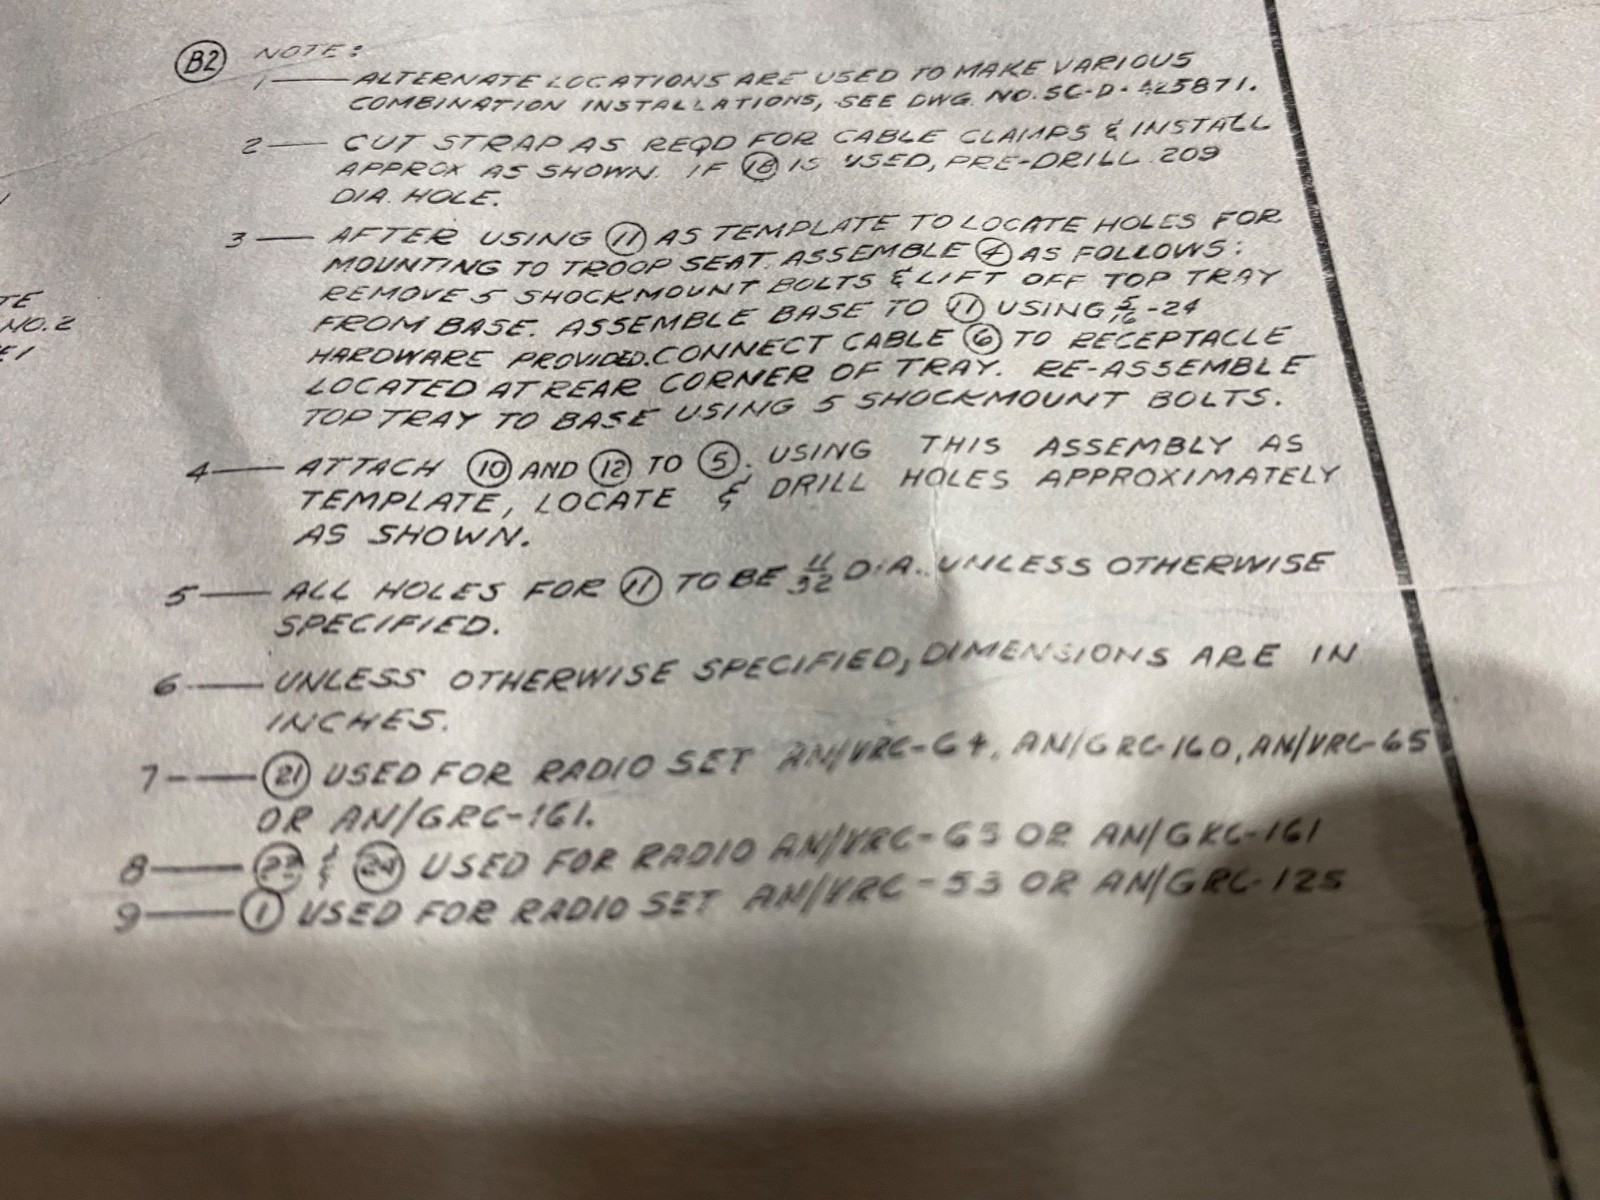 B2 NOTE:
1 — ALTERNATE LOCATIONS ARE USED TO MAKE VARIOUS
COMBINATION INSTALLATIONS, SEE DWG. NO. SC-D-425871.
2 — CUT STRAP AS REQD FOR CABLE CLAMPS & INSTALL
APPROX AS SHOWN. IF 18 IS USED, PRE-DRILL .209
DIA. HOLE.
3 — AFTER USING 11 AS TEMPLATE TO LOCATE HOLES FOR
MOUNTING TO TROOP SEAT. ASSEMBLE 4 AS FOLLOWS:
REMOVE 5 SHOCKMOUNT BOLTS & LIFT OFF TOP TRAY
FROM BASE. ASSEMBLE BASE TO 11 USING 5/16-24
HARDWARE PROVIDED. CONNECT CABLE 6 TO RECEPTACLE
LOCATED AT REAR CORNER OF TRAY. RE-ASSEMBLE
TOP TRAY TO BASE USING 5 SHOCKMOUNT BOLTS.
4 — ATTACH 10 AND 12 TO 5. USING THIS ASSEMBLY AS
TEMPLATE, LOCATE & DRILL HOLES APPROXIMATELY
AS SHOWN.
5 — ALL HOLES FOR 11 TO BE 11/32 DIA. UNLESS OTHERWISE
SPECIFIED.
6 — UNLESS OTHERWISE SPECIFIED, DIMENSIONS ARE IN
INCHES.
7 — 21 USED FOR RADIO SET AN/VRC-64, AN/GRC-160, AN/VRC-65
OR AN/GRC-161.
8 — & USED FOR RADIO AN/VRC-65 OR AN/GRC-161
9 — 1 USED FOR RADIO SET AN/VRC-53 OR AN/GRC-125
NO. 2